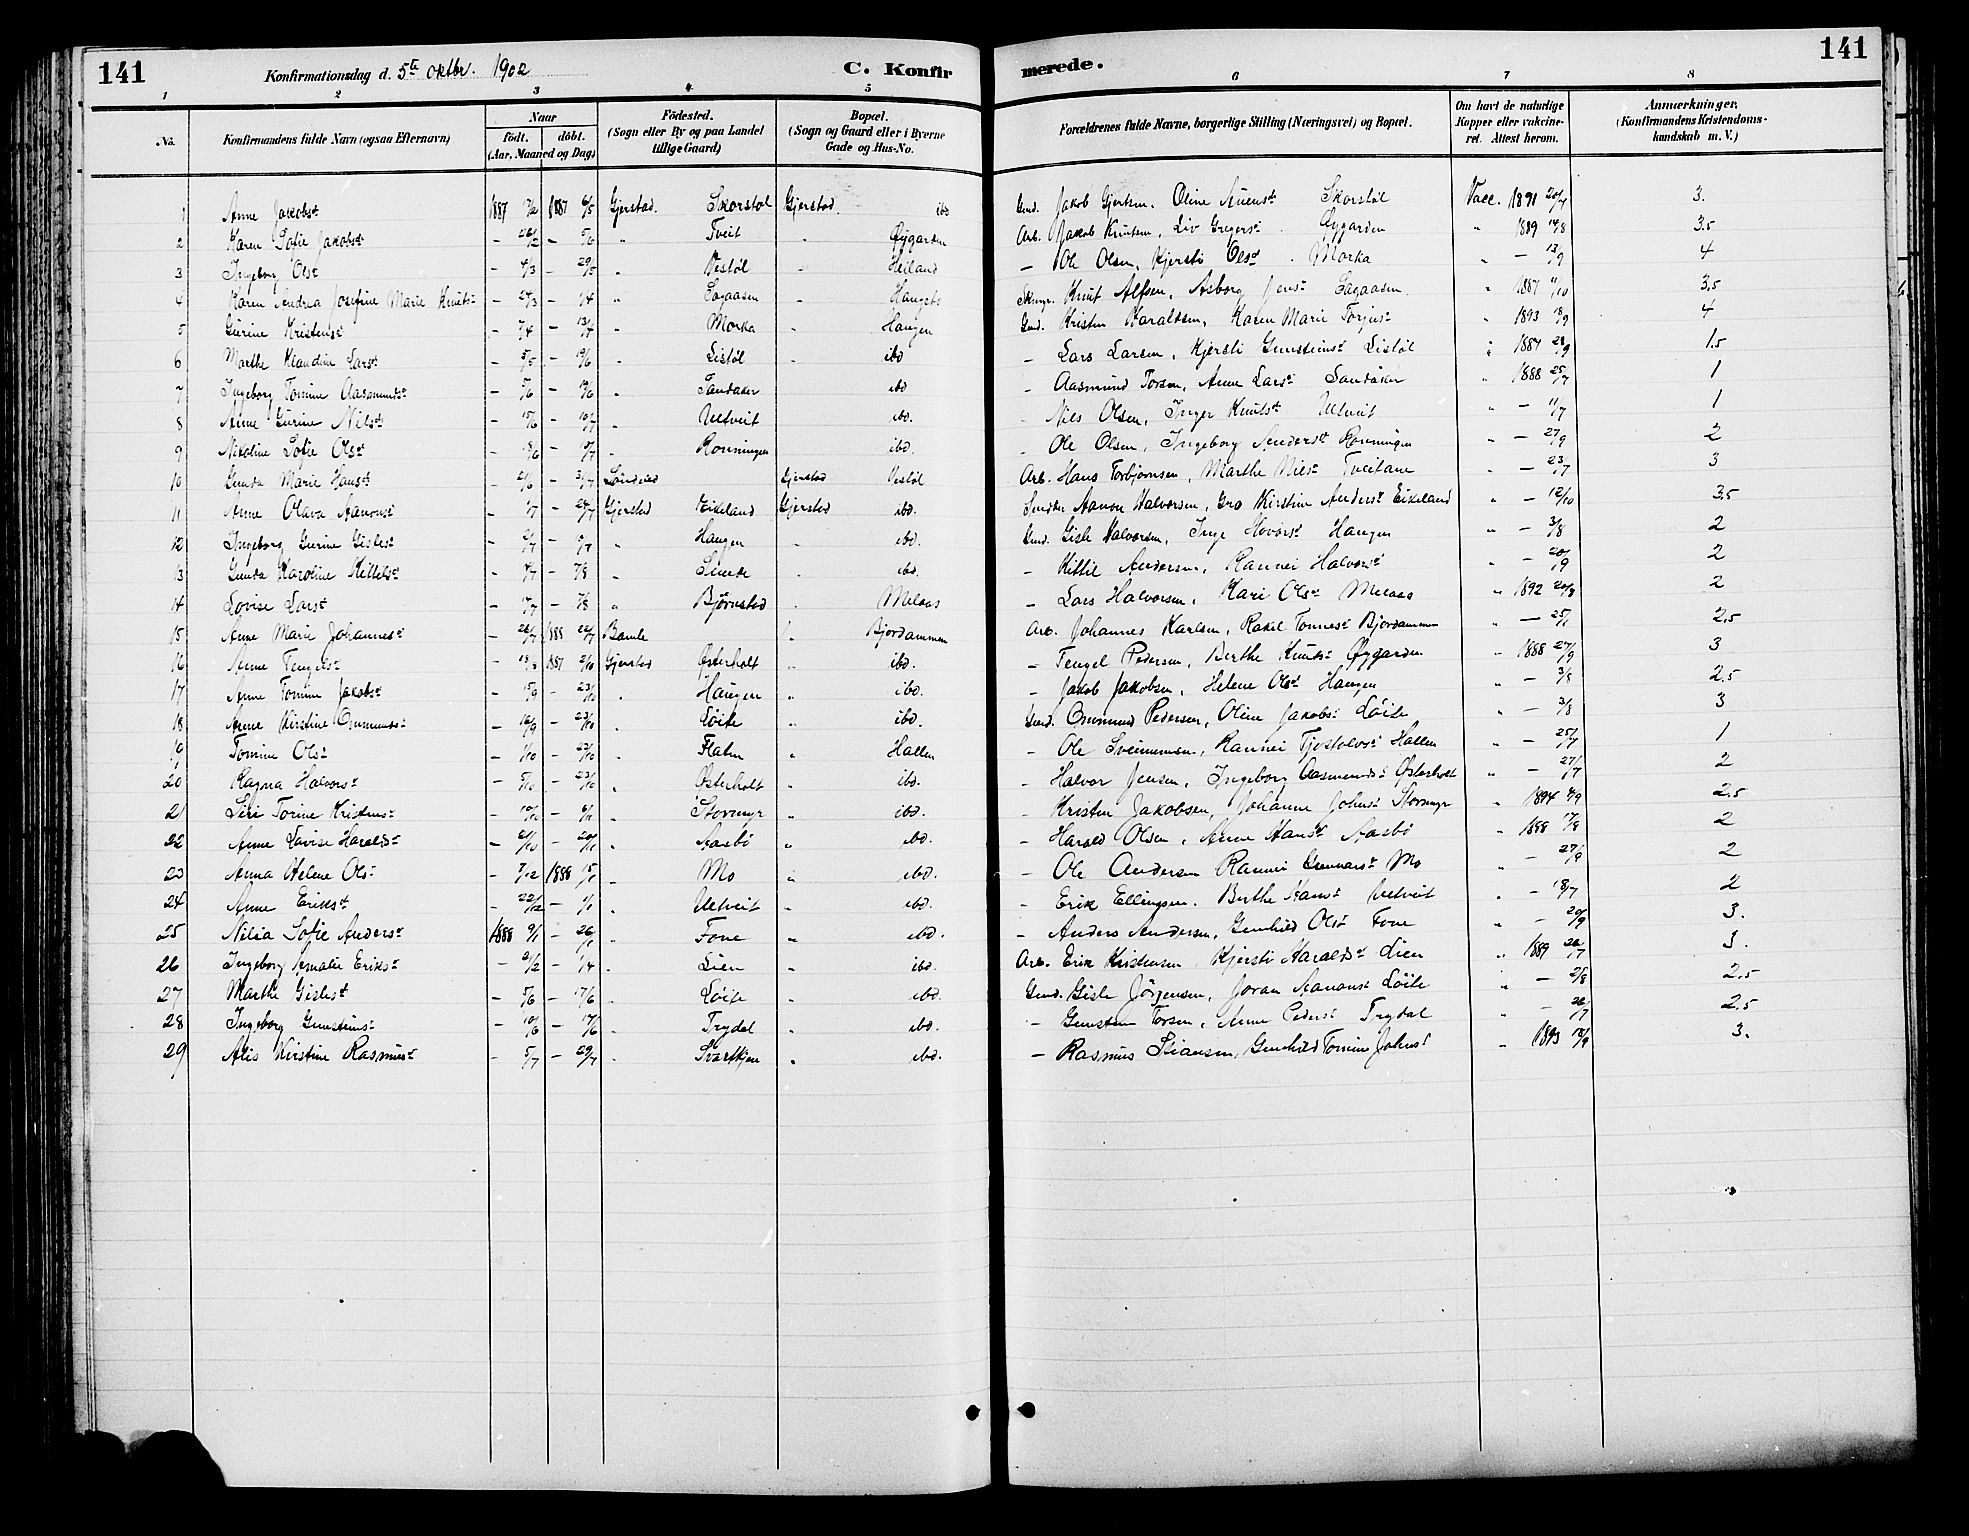 141 Konfirmationsdag d. 5te Oktbr. 1902 C. Konfir merede. 141
1 2 3 4 5 6 7 8
No. Konfirmandens fulde Navn (ogsaa Efternavn) Naar födt. döbt. (Aar, Maaned og Dag) Födested. (Sogn eller By og paa Landet tillige Gaard) Bopæl. (Sogn og Gaard eller i Byerne Gade og Hus-No. Forældrenes fulde Navne, borgerlige Stilling (Næringsvei) og Bopæl. Om havt de naturlige Kopper eller vakcineret. Attest herom. Anmærkninger. (Konfirmandens Kristendomskundskab m. V.)
1 Anne Jakobsd 1887 1887 6/5 Gjerstad. Skorstøl Gjerstad. ibd Gmd. Jakob Gjertsen, Oline Auensd Skorstøl Vacc. 1891 20/7 3.
2 Karen Sofie Jakobsd – 26/2 – 5/6 " Tveit " Øygarden Arb. Jakob Knutsen, Liv Gregersd. Øygarden " 1889 14/8 3.5
3 Ingeborg Olsd – 4/3 – 29/5 " Vestøl " Heiland – Ole Olsen, Kjersti Olsd. Morka " – 13/9 4
4 Karen Andrea Josefine Marie Knutsd – 24/3 – 1/4 " Lagaasen " Haugsto Knut Alfsen, Asborg Jensd Lagaasen " 1887 11/10 3.5
5 Gurine Kristensd – 7/4 – 13/7 " Morka " Haugen Gmd. Kristen Haraldsen, Karen Marie Torjusd " 1893 18/9 4
6 Marthe Klaudine Larsd – 5/5 – 19/6 " Listøl ibd – Lars Larsen, Kjersti Gunsteinsd Listøl " 1887 28/9 1.5
7 Ingeborg Tomine Aasmundsd – 5/6 – 19/6 " Sandaker ibd – Aasmund Torsen, Anne Larsd Sandåker " 1888 25/7 1
8 Anne Gurine Nilsd – 15/6 – 10/7 " Ulltveit ibd. – Nils Olsen, Inger Knutsd Ulltveit " – 11/7 1
9 Nikoline Sofie Olsd – 18/6 – 10/7 " Rønningen ibd. – Ole Olsen, Ingeborg Andersd Rønningen " – 27/9 2
10 Gunda Marie Hansd – 21/6 – 31/7 Søndeled Gjerstad Vestøl Arb. Hans Torbjørnsen, Marthe Nilsd Tveitane " – 23/7 3
11 Anne Olava Aanonsd – 1/7 – 24/7 Gjerstad Eikeland Gjerstad ibd. Aanon Halvorsen, Gro Kirstine Andersd Eikeland " – 12/10 3.5
12 Ingeborg Gurine Gislesd – 2/7 – " Haugen " ibd. Gmd. Gisle Halvorsen, Inge Hovorsd Haugen " – 3/8 2
13 Gunda Karoline Kittelsd – 4/7 – 7/8 " Lunde " ibd. – Kittil Andersen, Rannei Halvorsd – 20/9 2
14 Lovise Larsd – 17/7 – 7/8 " Bjørnstad " Melaas – Lars Halvorsen, Kari Olsd Melaas " 1892 20/8 2
15 Anne Marie Johannesd – 26/7 1888 22/7 Bamle Bjordammen Arb. Johannes Karlsen, Rakel Tonnesd Bjordammen " – 25/7 2.5
16 Anne Tengelsd – 18/8 1887 2/10 Gjerstad Østerholt " ibd. – Tengel Pedersen, Berthe Knutsd Øygarden " 1888 27/9 3
17 Anne Tomine Jakobsd – 15/9 – 23/10 " Haugen " ibd. – Jakob Jakobsen, Helene Olsd Haugen " – 3/8 2.5
18 Anne Kirstine Ommundsd – 16/9 – 23/10 " Löite " ibd. Gmd. Ommund Pedersen, Oline Jakobsd Löite " – 3/8 3
19 Tomine Olsd – 1/10 – 23/10 " Flaten " Hallen – Ole Sveinunsen, Rannei Tjostolvsd Hallen " – 25/7 1
20 Ragna Halvorsd – 5/10 – 23/10 " Østerholt " ibd. – Halvor Jensen, Ingeborg Aasmundsd Østerholt " – 27/7 2
21 Siri Torine Kristensd – 10/10 – 6/11 " Stormyr " ibd. – Kristen Jakobsen, Johanne Johnsd Stormyr " 1894 4/9 2.5
22 Anne Lovise Haraldsd – 21/10 – 20/11 " Aasbö " ibd. – Harald Olsen, Anne Hansd Aasbö " 1888 17/8 2
23 Anna Helene Olsd – 7/12 1888 15/1 " Mo " ibd. – Ole Andersen Rannei Gunnarsd Mo " – 27/9 2
24 Anne Eriksd – 22/12 – 1/1 " Ulltveit " ibd. – Erik Ellingsen, Berthe Hansd Ulltveit " – 18/7 2
25 Nilia Sofie Andersd 1888 9/1 – 26/1 " Fone " ibd. – Anders Andersen, Gunhild Olsd Fone " – 20/9 3.
26 Ingeborg Amalie Eriksd – 2/2 – 1/4 " Lien " ibd. Arb. Erik Kristensen, Kjersti Haraldsd Lien " 1889 26/7 3.
27 Marthe Gislesd – 5/6 – 17/6 " Löite " ibd. Gmd. Gisle Jörgensen, Joran Aanonsd Löite " – 2/8 2.5
28 Ingeborg Gunsteinsd – 10/6 – 17/6 " Trydal " ibd. – Gunsten Torsen, Anne Pedersd Trydal " – 26/7 2.5
29 Alis Kirstine Rasmusd – 5/7 – 29/7 " Svartkjen " ibd. – Rasmus Stiansen, Gunhild Tomine Johnsd " 1893 18/9 3.